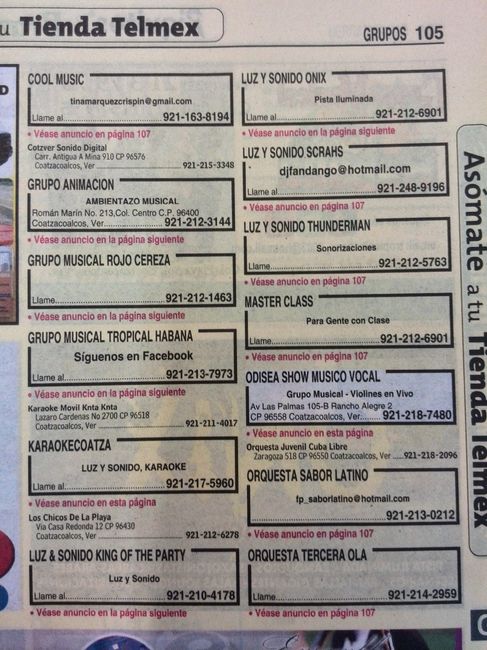 tu Tienda Telmex
GRUPOS 105
COOL MUSIC
tinamarquezcrispin@gmail.com
Llame al..........921-163-8194
• Véase anuncio en página 107
Cotzver Sonido Digital
Carr. Antigua A Mina 910 CP 96576
Coatzacoalcos, Ver ..........921-215-3348
GRUPO ANIMACION
AMBIENTAZO MUSICAL
Román Marín No. 213,Col. Centro C.P. 96400
Coatzacoalcos, Ver..........921-212-3144
• Véase anuncio en la página siguiente
GRUPO MUSICAL ROJO CEREZA
Llame..........921-212-1463
• Véase anuncio en la página siguiente
GRUPO MUSICAL TROPICAL HABANA
Síguenos en Facebook
Llame al..........921-213-7973
• Véase anuncio en la página siguiente
Karaoke Movil Knta Knta
Lazaro Cardenas No 2700 CP 96518
Coatzacoalcos, Ver ..........921-211-4017
KARAOKECOATZA
LUZ Y SONIDO, KARAOKE
Llame al..........921-217-5960
• Véase anuncio en esta página
Los Chicos De La Playa
Via Casa Redonda 12 CP 96430
Coatzacoalcos, Ver ..........921-212-6278
LUZ & SONIDO KING OF THE PARTY
Luz y Sonido
Llame al..........921-210-4178
• Véase anuncio en la página siguiente
LUZ Y SONIDO ONIX
Pista Iluminada
Llame al..........921-212-6901
• Véase anuncio en la página siguiente
LUZ Y SONIDO SCRAHS
djfandango@hotmail.com
Llame al..........921-248-9196
• Véase anuncio en página 107
LUZ Y SONIDO THUNDERMAN
Sonorizaciones
Llame al..........921-212-5763
• Véase anuncio en página 107
MASTER CLASS
Para Gente con Clase
Llame al..........921-212-6901
• Véase anuncio en página 107
ODISEA SHOW MUSICO VOCAL
Grupo Musical - Violines en Vivo
Av Las Palmas 105-B Rancho Alegre 2
CP 96558 Coatzacoalcos, Ver..........921-218-7480
• Véase anuncio en esta página
Orquesta Juvenil Cuba Libre
Zaragoza 518 CP 96550 Coatzacoalcos, Ver .....921-218-2096
ORQUESTA SABOR LATINO
fp_saborlatino@hotmail.com
Llame al..........921-213-0212
• Véase anuncio en página 107
ORQUESTA TERCERA OLA
Llame al..........921-214-2959
• Véase anuncio en página 107
Asómate a tu Tienda Telmex